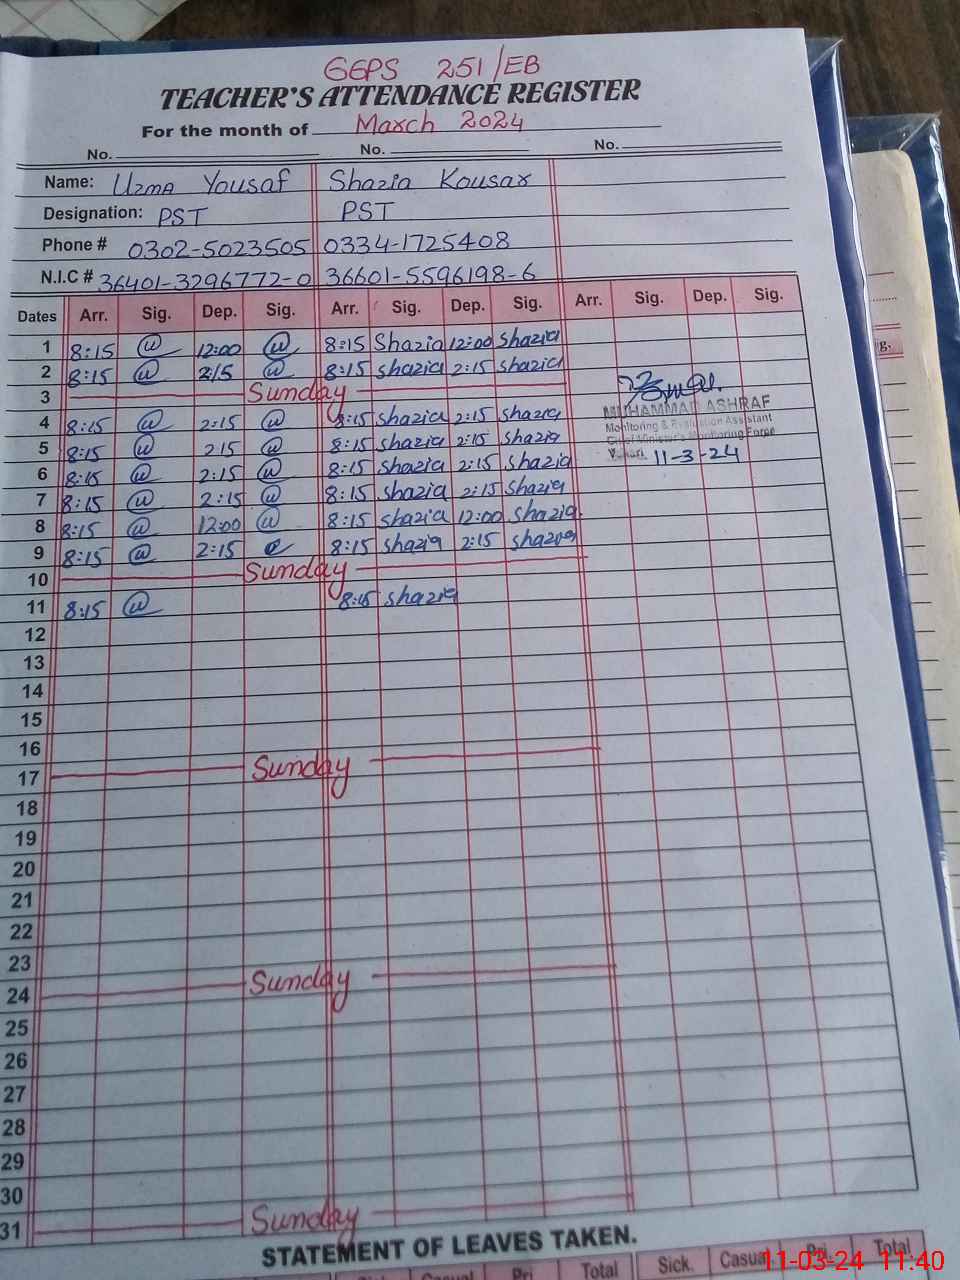 GGPS 251/EB
TEACHER'S ATTENDANCE REGISTER
For the month of March 2024
No. No. No.
Name: Uzma Yousaf Shazia Kousar
Designation: PST PST
Phone # 0302-5023505 0334-1725408
N.I.C # 36401-3296772-0 36601-5596198-6
Dates Arr. Sig. Dep. Sig. Arr. Sig. Dep. Sig. Arr. Sig. Dep. Sig.
1 8:15 u 12:00 u 8:15 Shazia 12:00 Shazia
2 8:15 u 2:15 u 8:15 shazia 2:15 shazia
3 Sunday
4 8:15 u 2:15 u 8:15 shazia 2:15 shazia
MUHAMMAD ASHRAF
Monitoring & Evaluation Assistant
Chief Minister's Monitoring Force
Vehari 11-3-24
5 8:15 u 2:15 u 8:15 shazia 2:15 shazia
6 8:15 u 2:15 u 8:15 shazia 2:15 shazia
7 8:15 u 2:15 u 8:15 shazia 2:15 shazia
8 8:15 u 12:00 u 8:15 shazia 12:00 shazia
9 8:15 u 2:15 8:15 shazia 2:15 shazia
10 Sunday
11 8:15 u 8:15 shazia
12
13
14
15
16
17 Sunday
18
19
20
21
22
23
24 Sunday
25
26
27
28
29
30
31 Sunday
STATEMENT OF LEAVES TAKEN.
Casual Pri. Total Sick. Casual Pri. Total
11-03-24 11:40